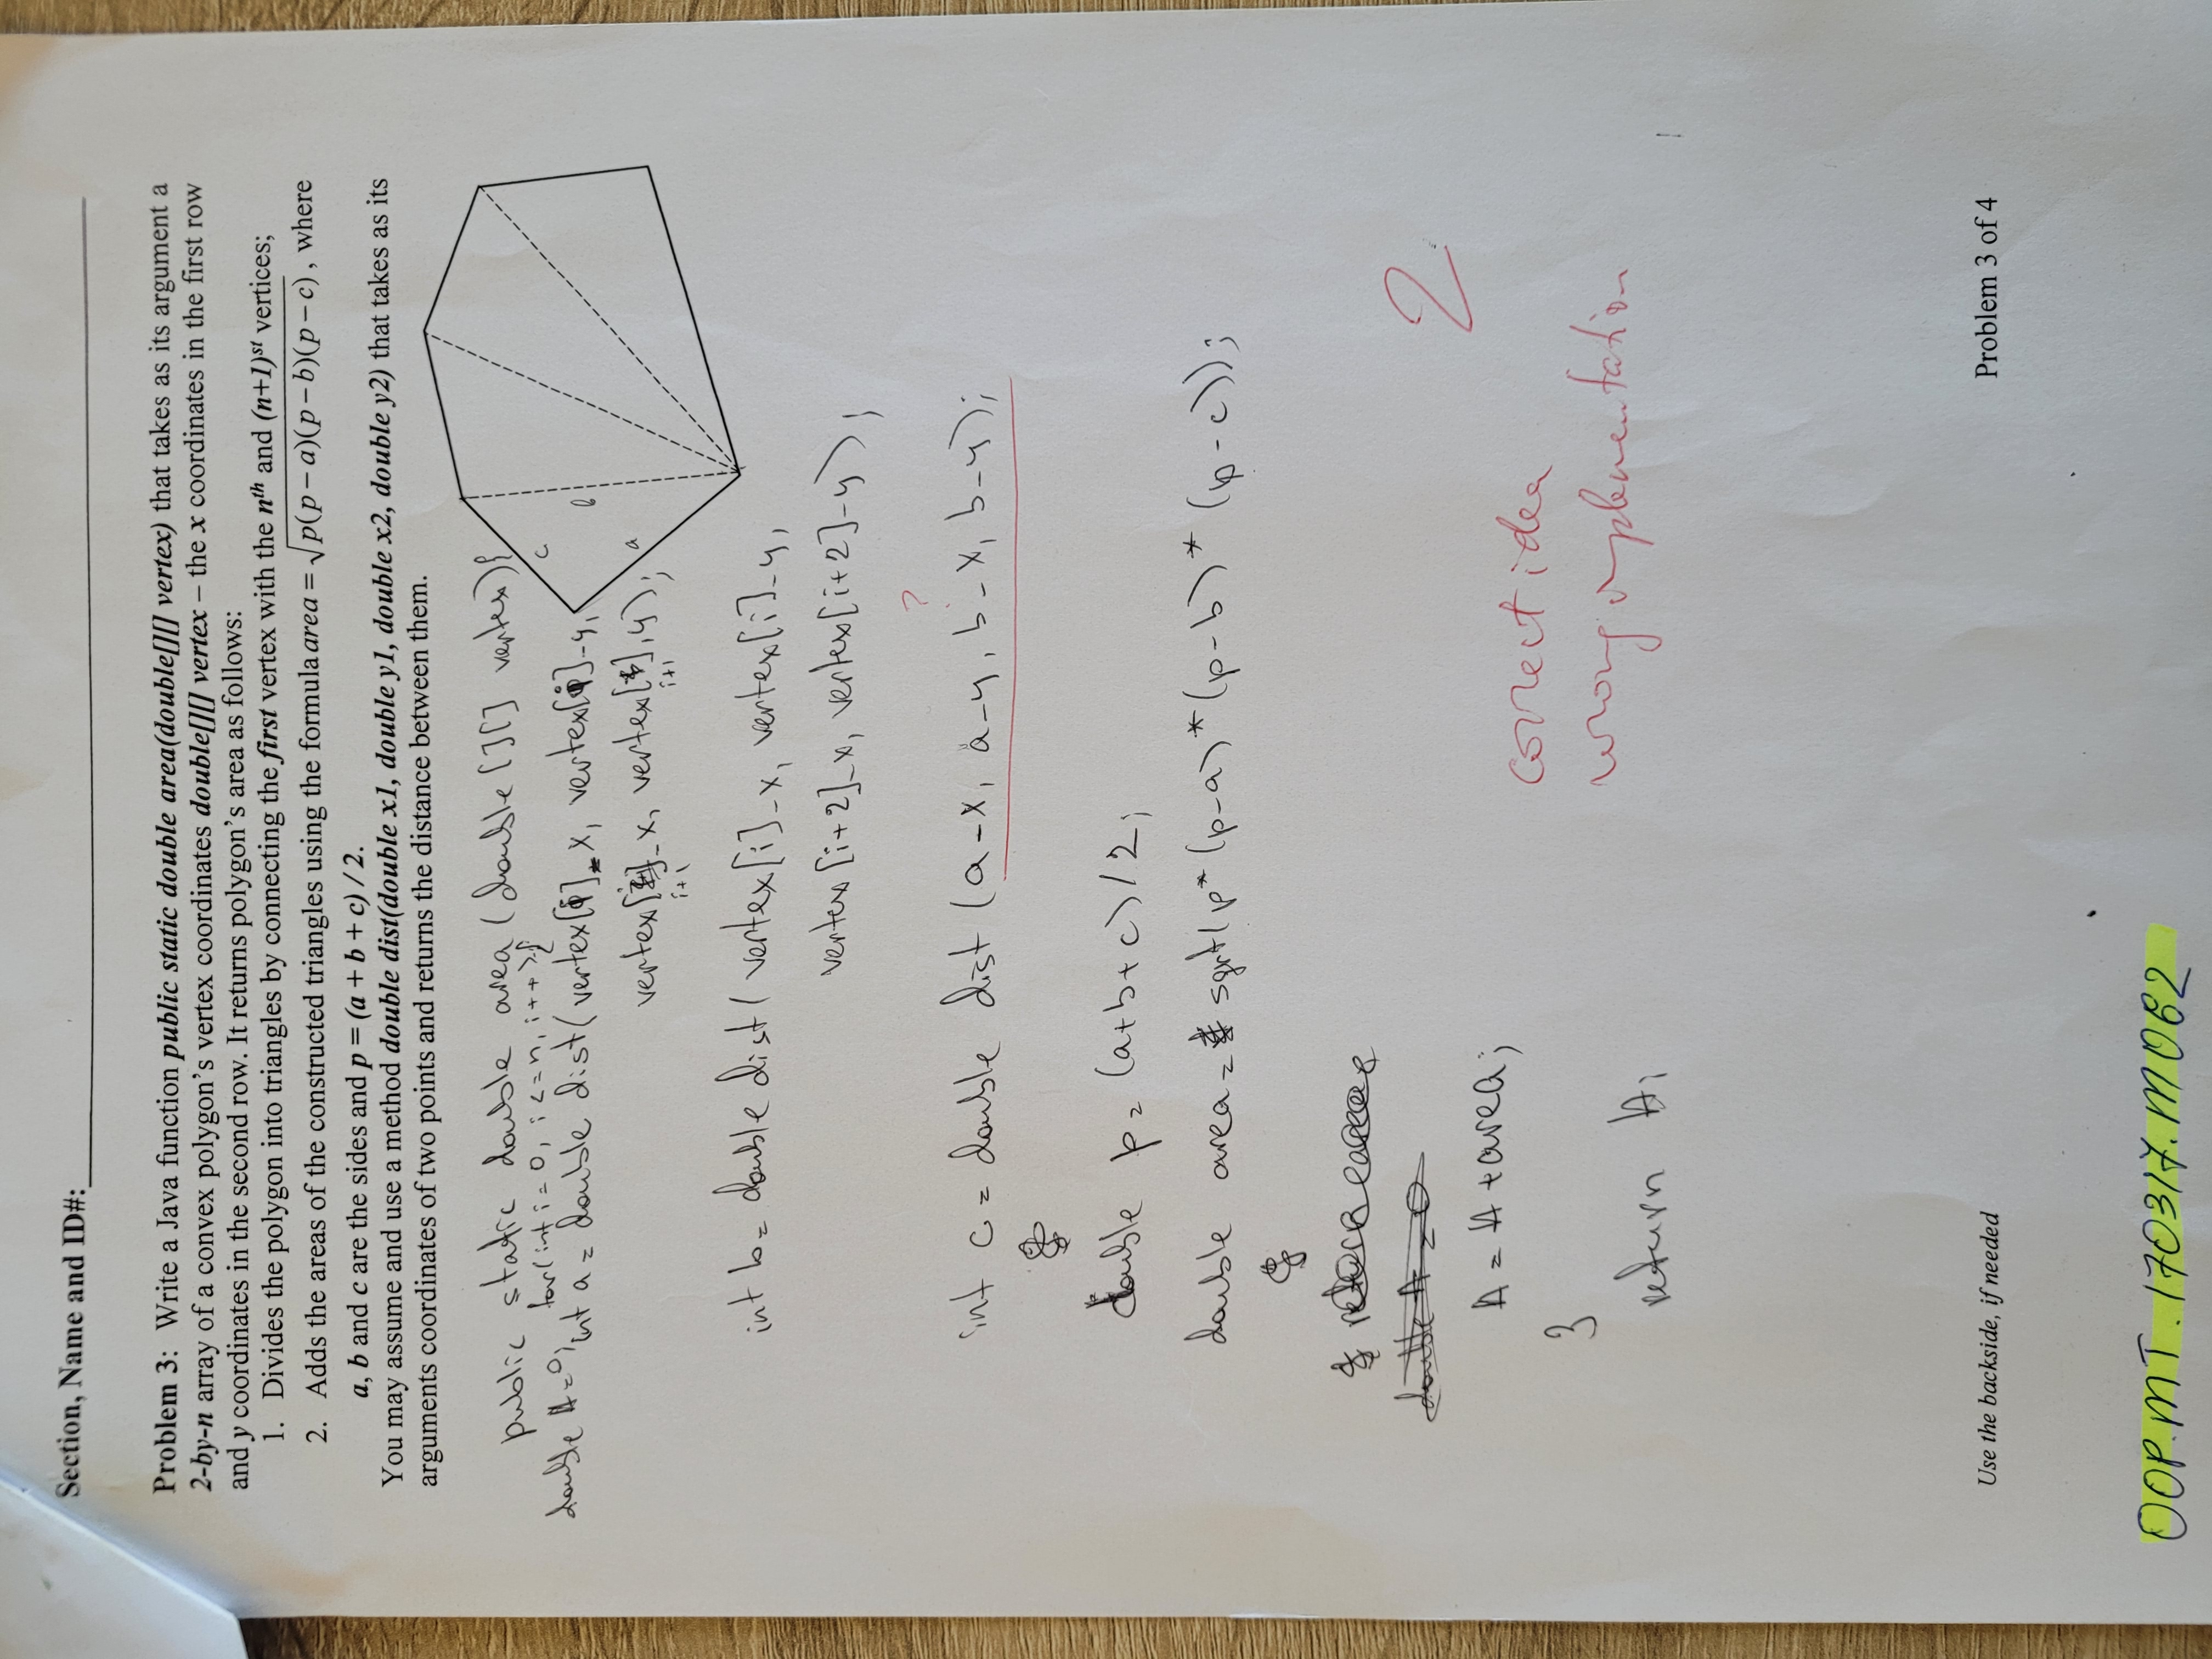 Section, Name and ID#:
Problem 3: Write a Java function public static double area(double[][] vertex) that takes as its argument a
2-by-n array of a convex polygon's vertex coordinates double[][] vertex – the x coordinates in the first row
and y coordinates in the second row. It returns polygon's area as follows:
1. Divides the polygon into triangles by connecting the first vertex with the nth and (n+1)st vertices;
2. Adds the areas of the constructed triangles using the formula area = √p(p − a)(p − b)(p − c) , where
a, b and c are the sides and p = (a + b + c) / 2.
You may assume and use a method double dist(double x1, double y1, double x2, double y2) that takes as its
arguments coordinates of two points and returns the distance between them.
public static double area (double [][] vertex){
for(int i = 0, i <= n, i++){
double A = 0;
int a = double dist(vertex[i]_x, vertex[i]_y,
c
b
a
vertex[i+1]_x, vertex[i+1]_y);
int b = double dist( vertex[i]_x, vertex[i]_y,
vertex [i+2]_x, vertex[i+2]_y);
?
int c = double dist (a_x, a_y, b_x, b_y);
double p = (a+b+c)/2;
double area = sqrt(p*(p-a)*(p-b)*(p-c));
double A = 0
A = A + area;
}
return A;
2
correct idea
wrong implementation
Use the backside, if needed
Problem 3 of 4
OOP.MT.170317.M062